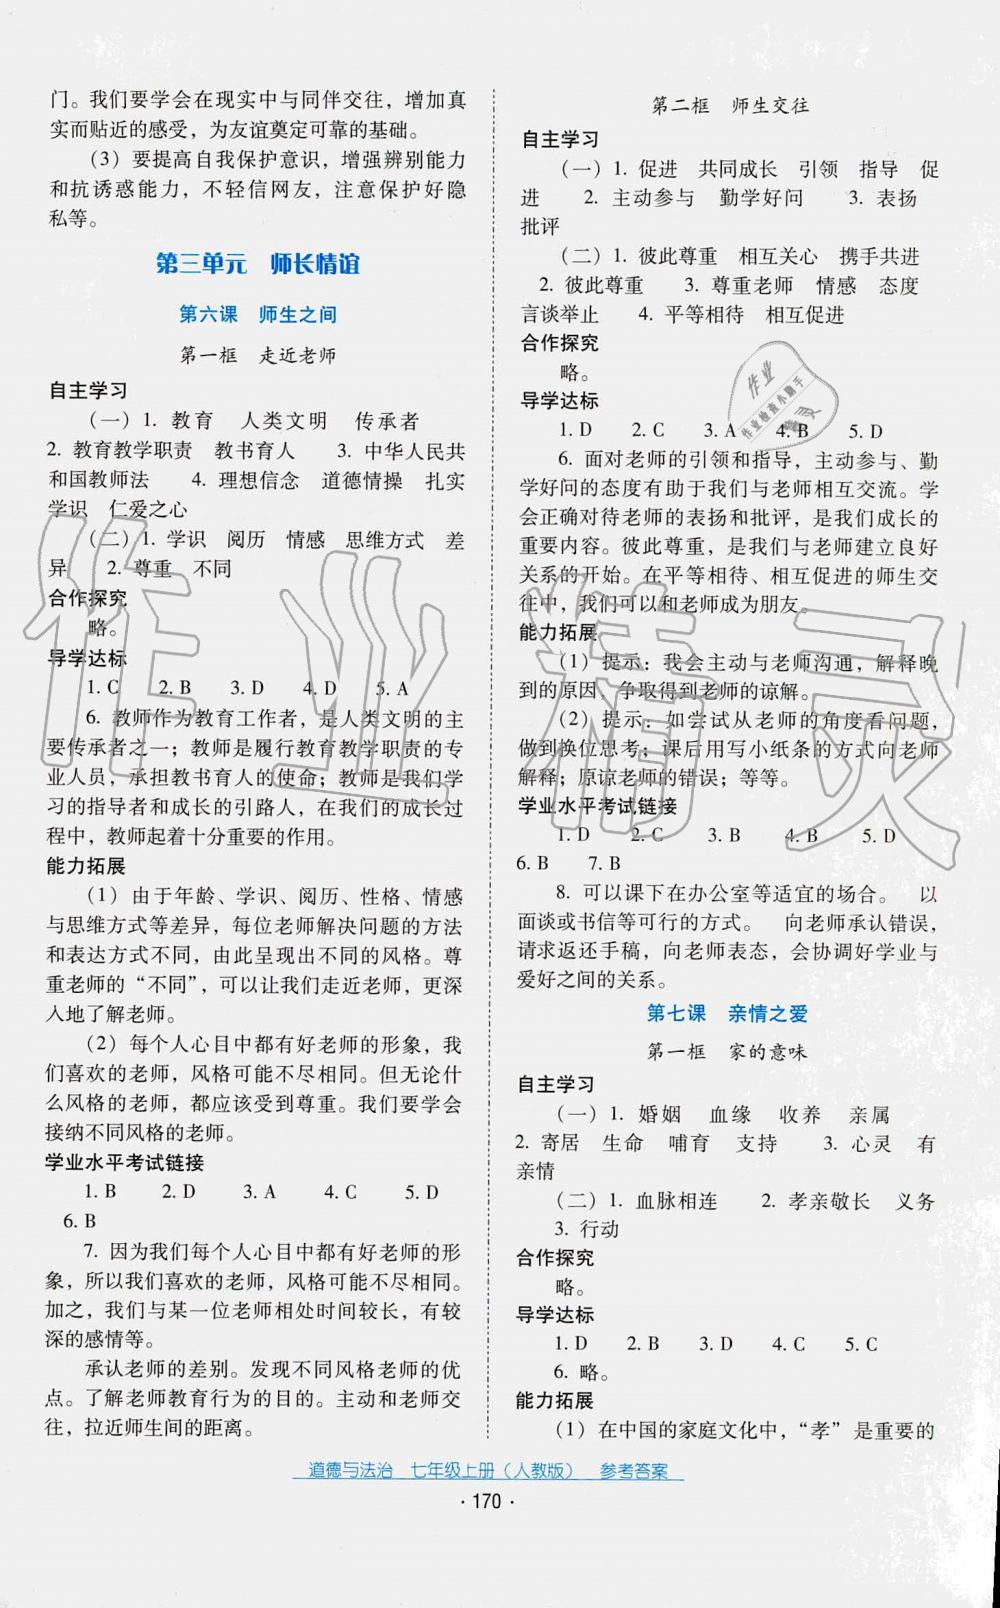 门。我们要学会在现实中与同伴交往，增加真
实而贴近的感受，为友谊奠定可靠的基础。
（3）要提高自我保护意识，增强辨别能力
和抗诱惑能力，不轻信网友，注意保护好隐
私等。
第三单元　师长情谊
第六课　师生之间
第一框　走近老师
自主学习
（一）1. 教育　人类文明　传承者
2. 教育教学职责　教书育人　3. 中华人民共
和国教师法　4. 理想信念　道德情操　扎实
学识　仁爱之心
（二）1. 学识　阅历　情感　思维方式　差
异　2. 尊重　不同
合作探究
略。
导学达标
1. C　2. B　3. D　4. D　5. A
6. 教师作为教育工作者，是人类文明的主
要传承者之一；教师是履行教育教学职责的专
业人员，承担教书育人的使命；教师是我们学
习的指导者和成长的引路人，在我们的成长过
程中，教师起着十分重要的作用。
能力拓展
（1）由于年龄、学识、阅历、性格、情感
与思维方式等差异，每位老师解决问题的方法
和表达方式不同，由此呈现出不同的风格。尊
重老师的“不同”，可以让我们走近老师，更深
入地了解老师。
（2）每个人心目中都有好老师的形象，我
们喜欢的老师，风格可能不尽相同。但无论什
么风格的老师，都应该受到尊重。我们要学会
接纳不同风格的老师。
学业水平考试链接
1. B　2. D　3. A　4. C　5. D
6. B
7. 因为我们每个人心目中都有好老师的形
象，所以我们喜欢的老师，风格可能不尽相同。
加之，我们与某一位老师相处时间较长，有较
深的感情等。
承认老师的差别。发现不同风格老师的优
点。了解老师教育行为的目的。主动和老师交
往，拉近师生间的距离。
第二框　师生交往
自主学习
（一）1. 促进　共同成长　引领　指导　促
进　2. 主动参与　勤学好问　3. 表扬
批评
（二）1. 彼此尊重　相互关心　携手共进
2. 彼此尊重　3. 尊重老师　情感　态度
言谈举止　4. 平等相待　相互促进
合作探究
略。
导学达标
1. D　2. C　3. A　4. B　5. D
6. 面对老师的引领和指导，主动参与、勤
学好问的态度有助于我们与老师相互交流。学
会正确对待老师的表扬和批评，是我们成长的
重要内容。彼此尊重，是我们与老师建立良好
关系的开始。在平等相待、相互促进的师生交
往中，我们可以和老师成为朋友。
能力拓展
（1）提示：我会主动与老师沟通，解释晚
到的原因，争取得到老师的谅解。
（2）提示：如尝试从老师的角度看问题，
做到换位思考；课后用写小纸条的方式向老师
解释；原谅老师的错误；等等。
学业水平考试链接
1. D　2. C　3. B　4. B　5. D
6. B　7. B
8. 可以课下在办公室等适宜的场合。　以
面谈或书信等可行的方式。　向老师承认错误，
请求返还手稿，向老师表态，会协调好学业与
爱好之间的关系。
第七课　亲情之爱
第一框　家的意味
自主学习
（一）1. 婚姻　血缘　收养　亲属
2. 寄居　生命　哺育　支持　3. 心灵　有
亲情
（二）1. 血脉相连　2. 孝亲敬长　义务
3. 行动
合作探究
略。
导学达标
1. D　2. B　3. D　4. D　5. C
6. 略。
能力拓展
（1）在中国的家庭文化中，“孝”是重要的
道德与法治　七年级上册（人教版）　参考答案
· 170 ·
作业精灵
作业
作业检查小助手
精灵